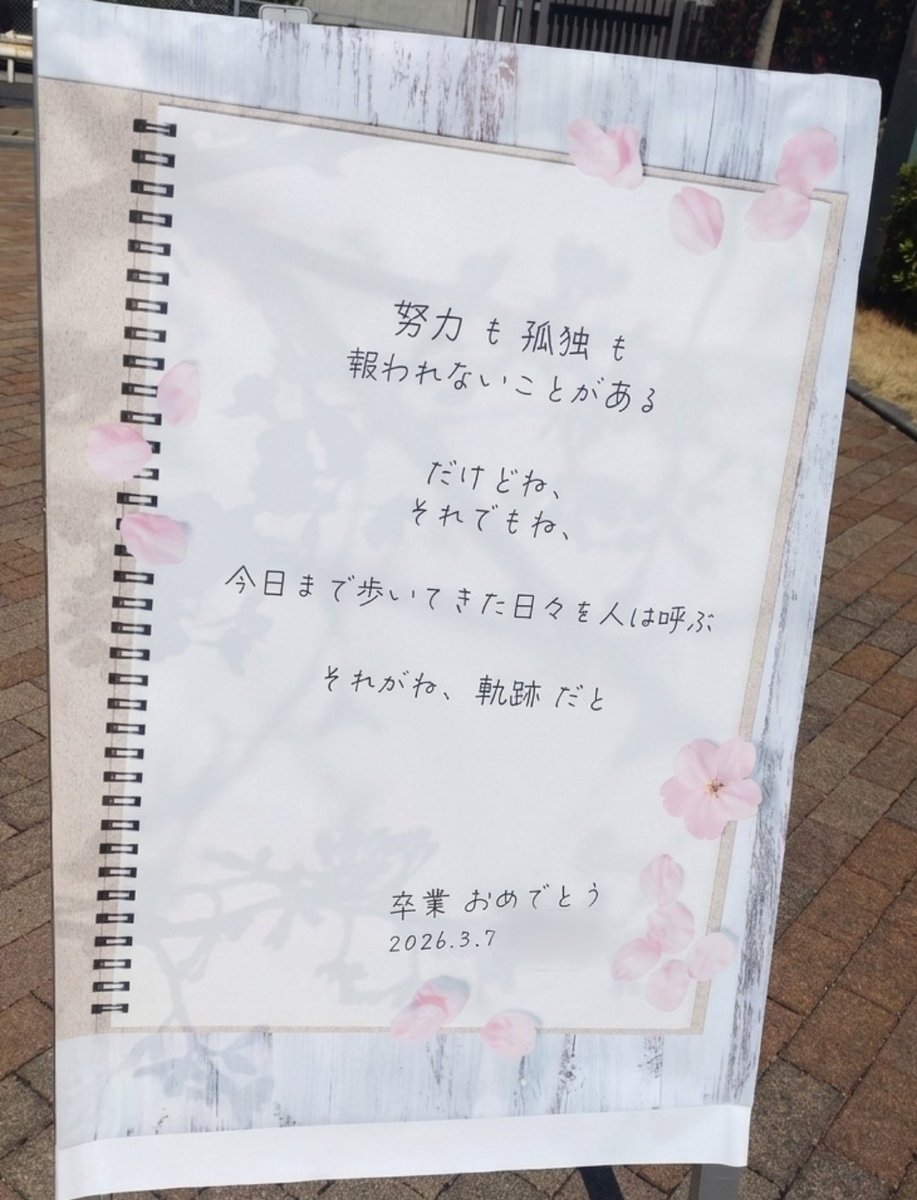 努力も孤独も
報われないことがある
だけどね、
それでもね、
今日まで歩いてきた日々を人は呼ぶ
それがね、軌跡だと
卒業おめでとう
2026.3.7